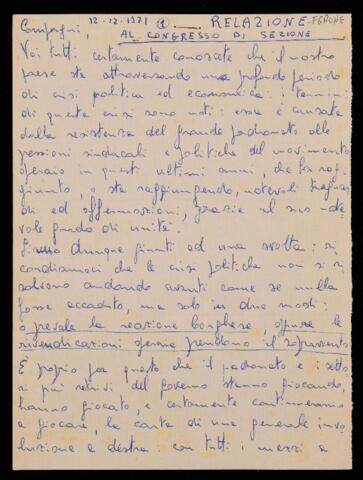 12-12-1971 ① — RELAZIONE - FERONE
Compagni, AL CONGRESSO DI SEZIONE
Voi tutti certamente conoscete che il nostro
paese sta attraversando un profondo periodo
di crisi politica ed economica: i termini
di questa crisi sono noti: essa è causata
dalla resistenza del grande padronato alle
pressioni sindacali e politiche del movimento
operaio in questi ultimi anni, che ha rag-
giunto, o sta raggiungendo, notevoli traguar-
di ed affermazioni, grazie al suo note-
vole grado di unità.
Siamo dunque giunti ad una svolta: ri-
cordiamoci che le crisi politiche non si ri-
solvono andando avanti come se nulla
fosse accaduto, ma solo in due modi:
o prevale la reazione borghese, oppure le
rivendicazioni operaie prendono il sopravvento
È proprio per questo che il padronato e i setto-
ri più retrivi del governo stanno giocando,
hanno giocato, e certamente continueranno
a giocare, la carta di una generale invo-
luzione a destra: con tutti i mezzi a